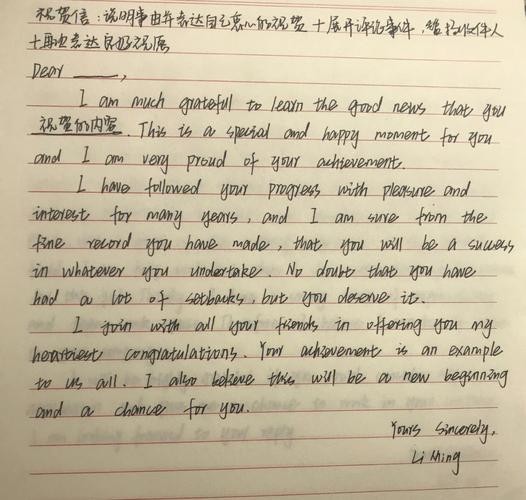 祝贺信：说明事由并表达自己衷心的祝贺 + 展开评论事件，赞扬收件人
+ 再次表达良好祝愿
Dear ____,
I am much grateful to learn the good news that you
祝贺的内容. This is a special and happy moment for you
and I am very proud of your achievement.
I have followed your progress with pleasure and
interest for many years, and I am sure from the
fine record you have made, that you will be a success
in whatever you undertake. No doubt that you have
had a lot of setbacks, but you deserve it.
I join with all your friends in offering you my
heartiest congratulations. Your achievement is an example
to us all. I also believe this will be a new beginning
and a chance for you.
Yours sincerely,
Li Ming